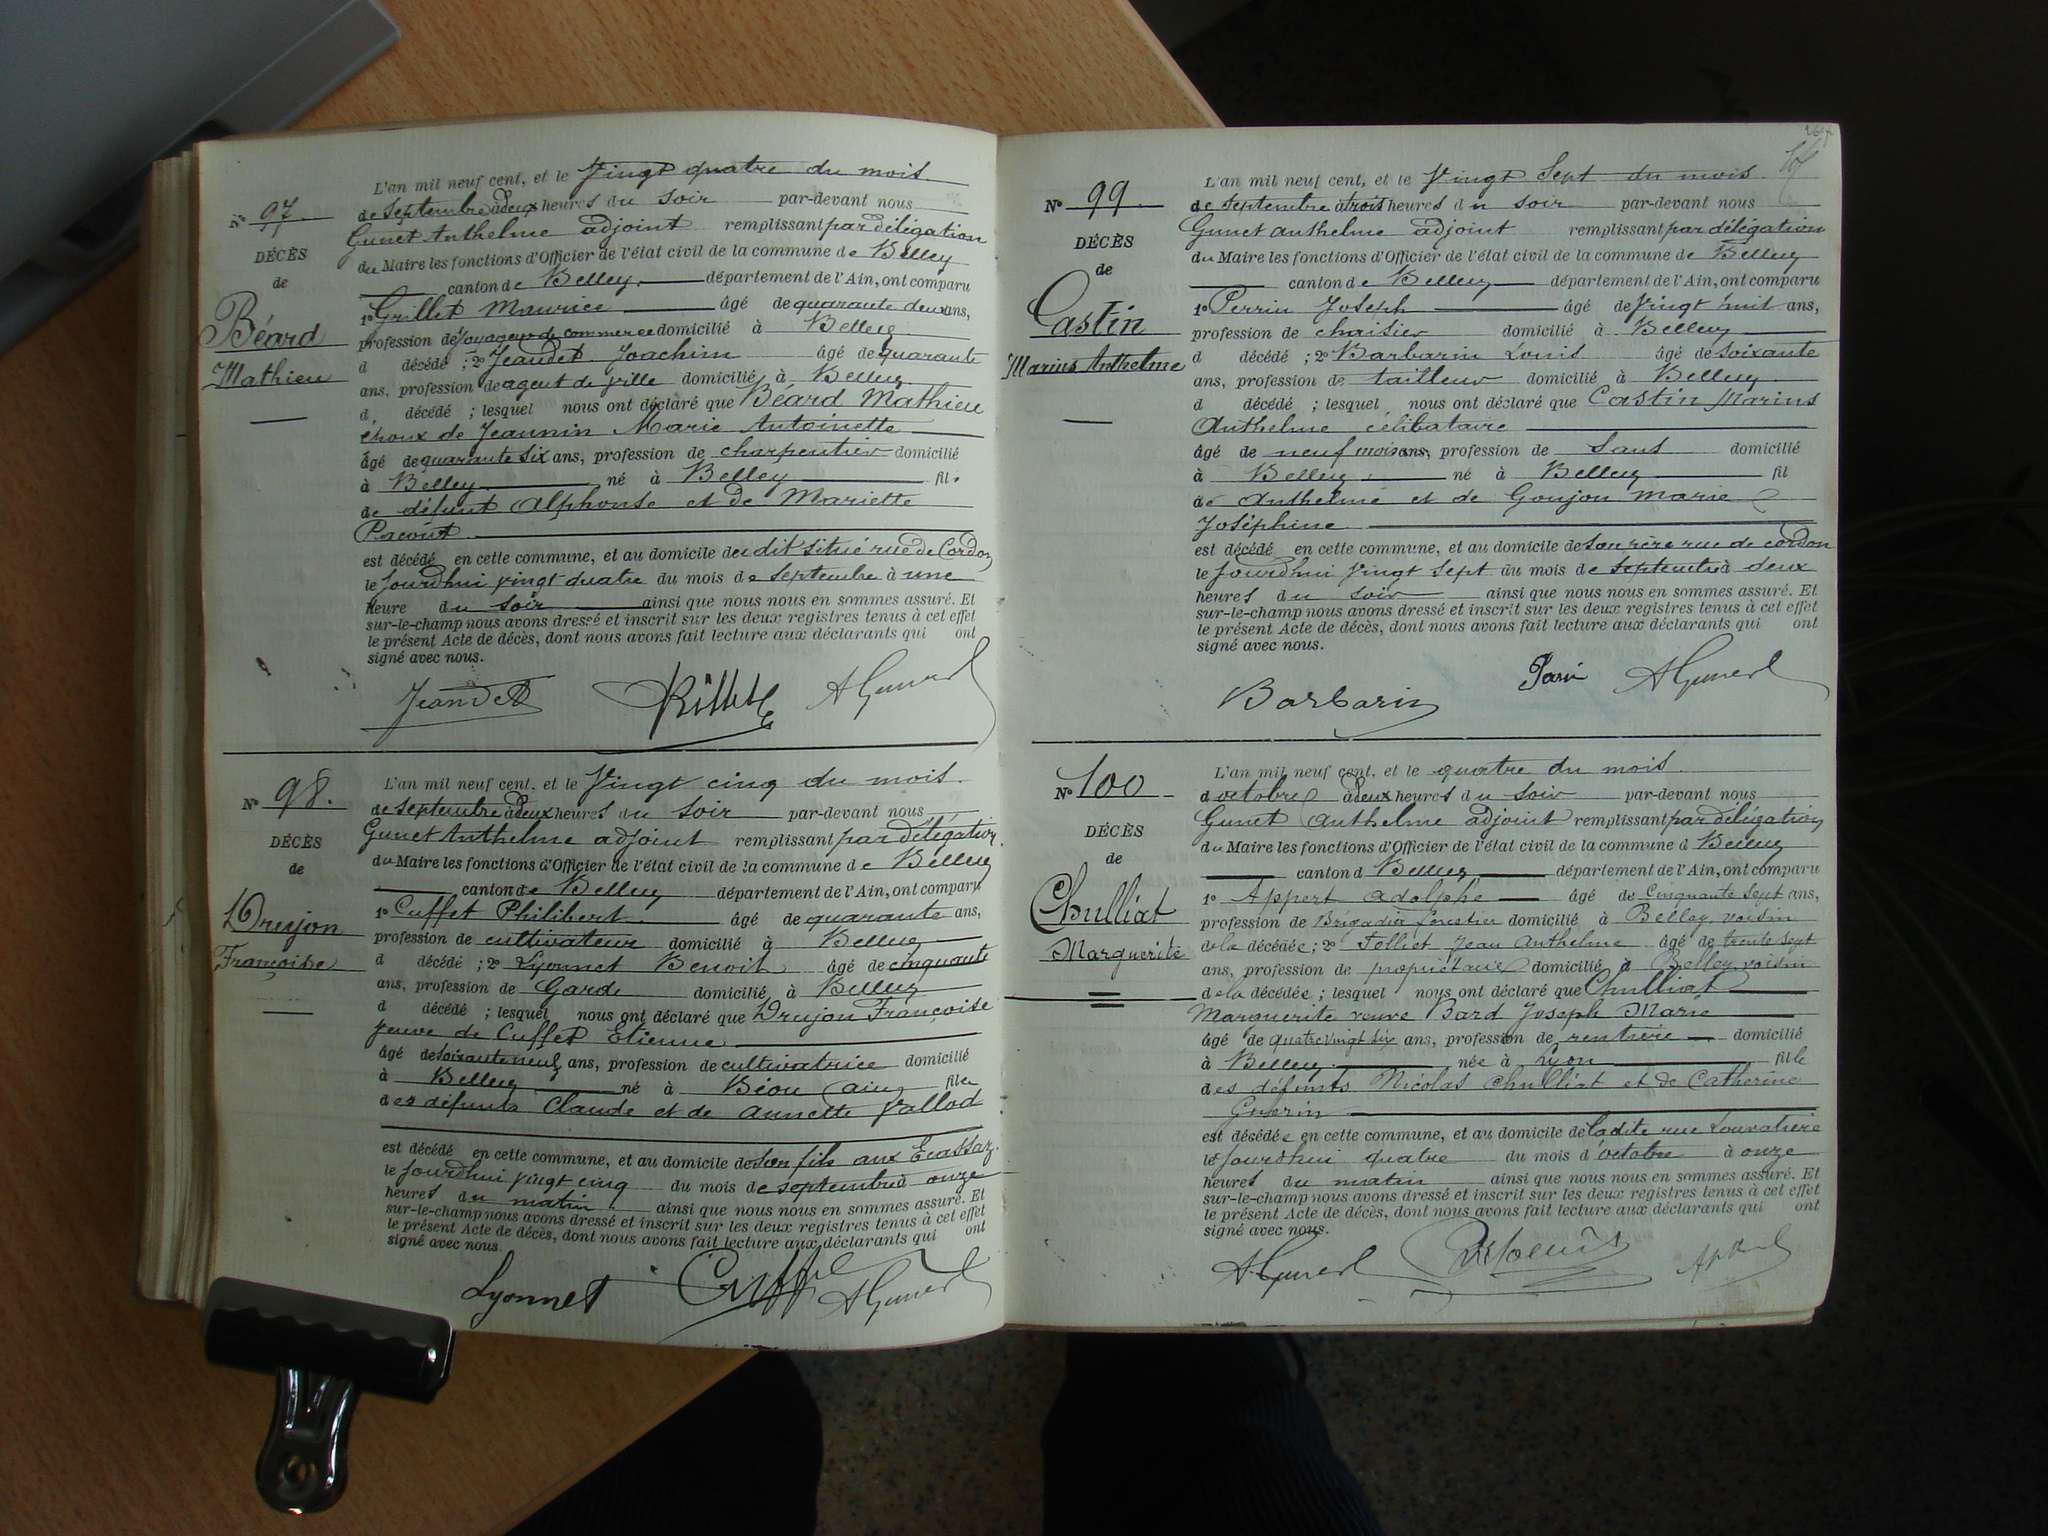 L'an mil neuf cent, et le Vingt quatre du mois
N° 97.
de Septembre à deux heures du soir par-devant nous
Gunet Anthelme adjoint remplissant par délégation
DÉCÈS
du Maire les fonctions d'Officier de l'état civil de la commune de Belley
de
canton de Belley département de l'Ain, ont comparu
Béard
Mathieu
1° Grillet Maurice âgé de quarante deux ans,
profession de Voyageur de commerce domicilié à Belley
d décédé ; 2° Jeandet Joachim âgé de quarante
ans, profession de agent de ville domicilié à Belley
d décédé ; lesquel nous ont déclaré que Béard Mathieu
époux de Jeannin Marie Antoinette
âgé de quarante six ans, profession de charpentier domicilié
à Belley né à Belley fils
de défunt Alphonse et de Mariette
Pacout
est décédé en cette commune, et au domicile du dit situé rue de Cordon
le jourdhui vingt quatre du mois de Septembre à une
heure du soir ainsi que nous nous en sommes assuré. Et
sur-le-champ nous avons dressé et inscrit sur les deux registres tenus à cet effet
le présent Acte de décès, dont nous avons fait lecture aux déclarants qui ont
signé avec nous.
Jeandet Rillet AGunet
L'an mil neuf cent, et le Vingt cinq du mois
N° 98.
de Septembre à deux heures du soir par-devant nous
Gunet Anthelme adjoint remplissant par délégation
DÉCÈS
du Maire les fonctions d'Officier de l'état civil de la commune de Belley
de
canton de Belley département de l'Ain, ont comparu
Drujon
Françoise
1° Cuffet Philibert âgé de quarante ans,
profession de cultivateur domicilié à Belley
d décédé ; 2° Lyonnet Benoit âgé de cinquante
ans, profession de Garde domicilié à Belley
d décédé ; lesquel nous ont déclaré que Drujon Françoise
veuve de Cuffet Etienne
âgé de soixante neuf ans, profession de cultivatrice domicilié
à Belley né à Béon Ain fille
des défunts Claude et de Annette Vallod
est décédé en cette commune, et au domicile de son fils aux Ecassaz
le jourdhui vingt cinq du mois de septembre à onze
heures du matin ainsi que nous nous en sommes assuré. Et
sur-le-champ nous avons dressé et inscrit sur les deux registres tenus à cet effet
le présent Acte de décès, dont nous avons fait lecture aux déclarants qui ont
signé avec nous.
Lyonnet Cuffet AGunet
L'an mil neuf cent, et le Vingt Sept du mois
N° 99.
de Septembre à trois heures du soir par-devant nous
Gunet Anthelme adjoint remplissant par délégation
DÉCÈS
du Maire les fonctions d'Officier de l'état civil de la commune de Belley
de
canton de Belley département de l'Ain, ont comparu
Castin
Marius Anthelme
1° Perrin Joseph âgé de Vingt huit ans,
profession de chaisier domicilié à Belley
d décédé ; 2° Barbarin Louis âgé de soixante
ans, profession de tailleur domicilié à Belley
d décédé ; lesquel nous ont déclaré que Castin Marius
Anthelme célibataire
âgé de neuf mois ans, profession de Sans domicilié
à Belley né à Belley fil
de Anthelme et de Goujon Marie
Joséphine
est décédé en cette commune, et au domicile de son père rue de Cordon
le jourdhui Vingt Sept du mois de septembre à deux
heures du soir ainsi que nous nous en sommes assuré. Et
sur-le-champ nous avons dressé et inscrit sur les deux registres tenus à cet effet
le présent Acte de décès, dont nous avons fait lecture aux déclarants qui ont
signé avec nous.
Barbarin AGunet
L'an mil neuf cent, et le quatre du mois
N° 100
d'octobre à deux heures du soir par-devant nous
Gunet Anthelme adjoint remplissant par délégation
DÉCÈS
du Maire les fonctions d'Officier de l'état civil de la commune d Belley
de
canton d Belley département de l'Ain, ont comparu
Chulliat
Marguerite
1° Appert Adolphe âgé de Cinquante sept ans,
profession de Brigadier forestier domicilié à Belley voisin
de la décédée ; 2° Felliet Jean Anthelme âgé de trente sept
ans, profession de propriétaire domicilié à Belley voisin
de la décédée ; lesquel nous ont déclaré que Chulliat
Marguerite veuve Bard Joseph Marie
âgé de quatre vingt six ans, profession de rentière domicilié
à Belley née à Lyon fille
des défunts Nicolas Chulliat et de Catherine
Guerin
est décédée en cette commune, et au domicile de ladite rue Louvatière
le jourdhui quatre du mois d'octobre à onze
heures du matin ainsi que nous nous en sommes assuré. Et
sur-le-champ nous avons dressé et inscrit sur les deux registres tenus à cet effet
le présent Acte de décès, dont nous avons fait lecture aux déclarants qui ont
signé avec nous.
AGunet